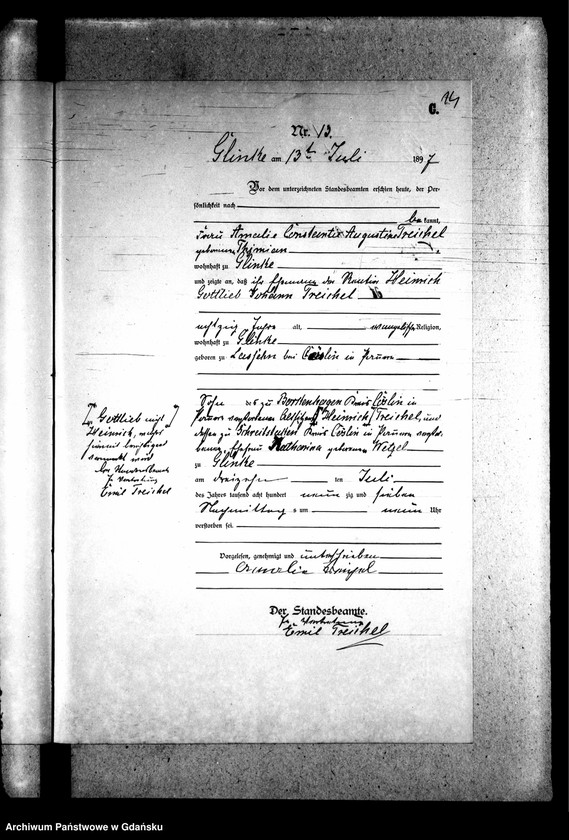 C. 14
Nr. 13.
Glinke am 13t Juli 1897
Vor dem unterzeichneten Standesbeamten erschien heute, der Per-
sönlichkeit nach
be kannt,
Frau Amalie Constantia Augustine Treichel
geborene Thimian
wohnhaft zu Glinke
und zeigte an, daß ihr Ehemann der Rentier Heinrich
Gottlieb Johann Treichel
achtzig Jahre alt, evangelischer Religion,
wohnhaft zu Glinke
geboren zu Lassehn bei Cöslin in Pommern
Sohn des zu Borkenhagen Kreis Cöslin in
Pommern verstorbenen Heinrich Treichel, und
dessen zu Streitz Kreis Cöslin in Pommern verstor-
benen Ehefrau Katharina geborenen Wetzel
zu Glinke
am dreizehn ten Juli
des Jahres tausend acht hundert neun zig und sieben
Nachmittag s um neun Uhr
verstorben sei.
Vorgelesen, genehmigt und unterschrieben
Amalie Treichel
Der Standesbeamte.
In Vertretung
Emil Treichel
Gottlieb nicht
Heinrich, welches
hiermit
vermerkt wird
Der Standesbeamte
In Vertretung
Emil Treichel
Archiwum Państwowe w Gdańsku